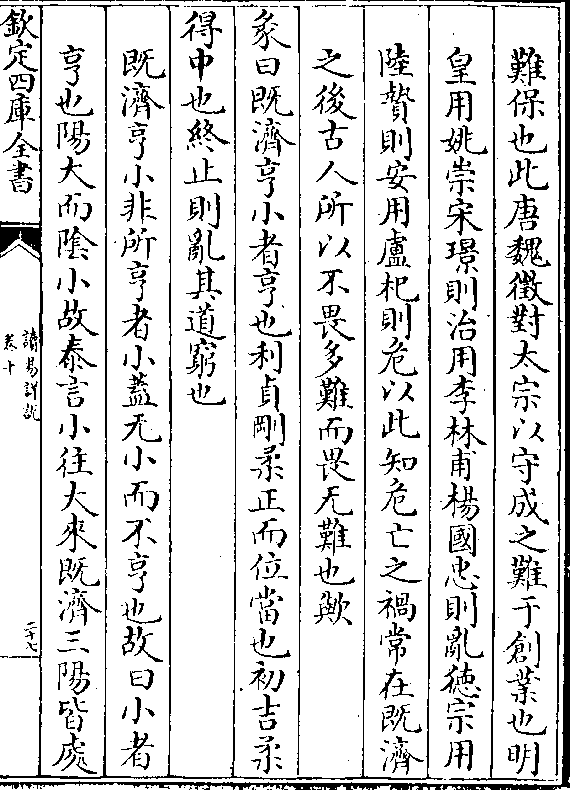 難保也此唐魏徵對太宗以守成之難于創業也明
皇用姚崇宋璟則治用李林甫楊國忠則亂徳宗用
陸贄則安用盧杞則危以此知危亡之禍常在既濟
之後古人所以不畏多難而畏无難也歟
彖曰既濟亨小者亨也利貞剛柔正而位當也初吉柔
得中也終止則亂其道窮也
既濟亨小非所亨者小蓋无小而不亨也故曰小者
亨也陽大而陰小故泰言小往大來既濟三陽皆處
欽定四庫全書
讀易詳説
卷十
二十七